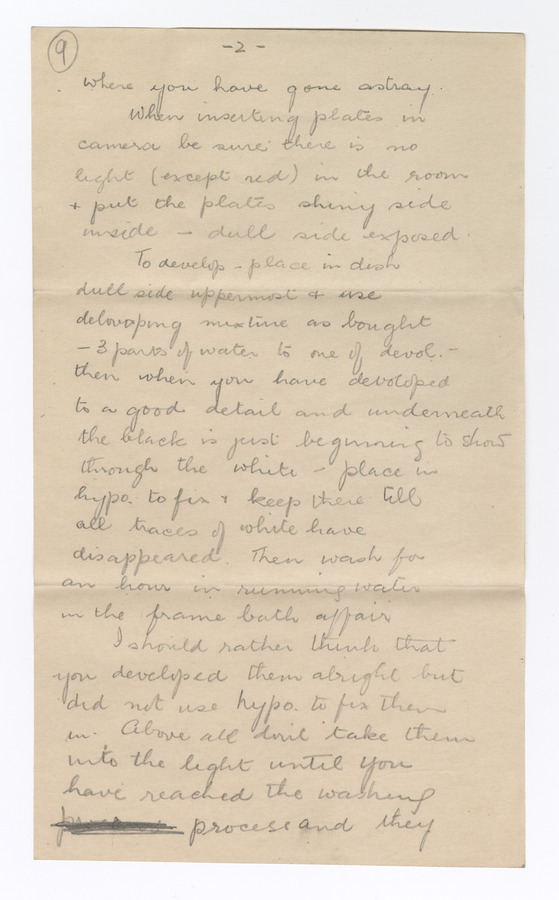 9
-2-
where you have gone astray.
When inserting plates in
camera be sure there is no
light (except red) in the room
+ put the plates shiny side
inside - dull side exposed.
To develop - place in dish
dull side uppermost + use
delovoping mixture as bought
- 3 parts of water to one of devol. -
then when you have devoloped
to a good detail and underneath
the black is just beginning to show
through the white - place in
hypo. to fix + keep there till
all traces of white have
disappeared. Then wash for
an hour in running water
in the frame bath affair
I should rather think that
you developed them alright but
did not use hypo. to fix them
in. Above all don't take them
into the light until you
have reached the washing
process and they